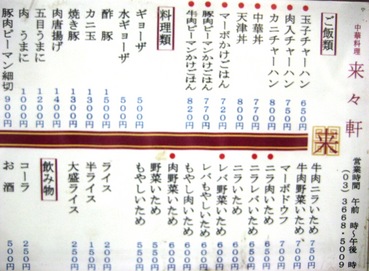 中華料理
来々軒
営業時間 午前 時〜午後 時
(03) 3668-5009
ご飯類
玉子チャーハン 650円
肉入チャーハン 750円
カニチャーハン 800円
中華丼 770円
天津丼 770円
マーボかけごはん 720円
豚肉ピーマンかけごはん 770円
牛肉ピーマンかけごはん 820円
料理類
ギョーザ 500円
水ギョーザ 500円
酢豚
カニ玉
焼き豚 1300円
肉唐揚げ 1400円
五目うまに
肉うまに 1000円
豚肉ピーマン細切 900円
来
牛肉ニラいため 750円
牛肉野菜いため
マーボドウフ
ニラ肉いため
ニラレバいため
ニラいため
レバ野菜いため 600円
レバもやしいため 600円
もやし肉いため 600円
肉野菜いため 600円
野菜いため
もやしいため
ライス 200円
半ライス 150円
大盛ライス 250円
飲み物
コーラ
お酒 500円